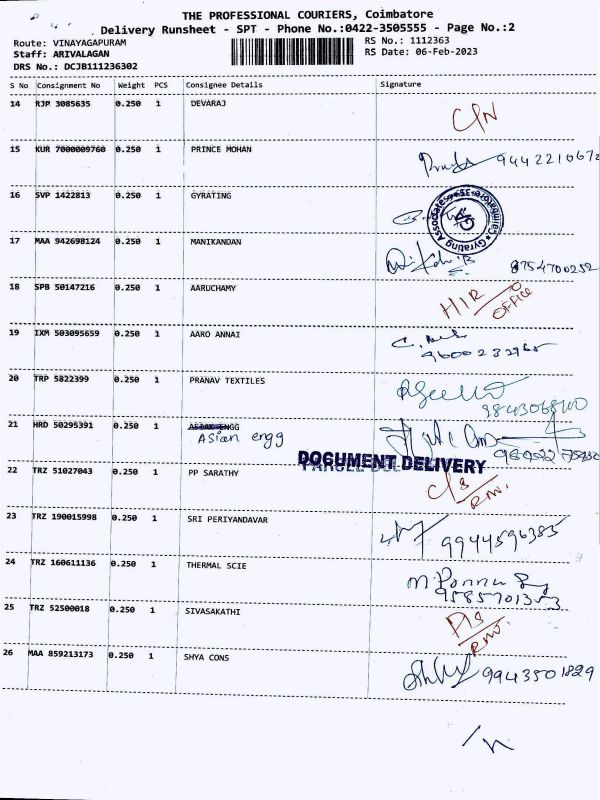 THE PROFESSIONAL COURIERS, Coimbatore
Delivery Runsheet - SPT - Phone No.:0422-3505555 - Page No.:2
Route: VINAYAGAPURAM
Staff: ARIVALAGAN
DRS No.: DCJB111236302
RS No.: 1112363
RS Date: 06-Feb-2023
S No Consignment No Weight PCS Consignee Details Signature
14 RJP 3085635 0.250 1 DEVARAJ
15 KUR 7000009760 0.250 1 PRINCE MOHAN 9442210672
16 SVP 1422813 0.250 1 GYRATING
Gyrating Associates
17 MAA 942698124 0.250 1 MANIKANDAN 8754700252
18 SPB 50147216 0.250 1 AARUCHAMY
OFFICE
19 IXM 503095659 0.250 1 AARO ANNAI
20 TRP 5822399 0.250 1 PRANAV TEXTILES
21 HRD 50295391 0.250 1 ASIAN ENGG
Asian engg
DOCUMENT DELIVERY
22 TRZ 51027043 0.250 1 PP SARATHY
23 TRZ 190015998 0.250 1 SRI PERIYANDAVAR 9944596385
24 TRZ 160611136 0.250 1 THERMAL SCIE
25 TRZ 52500018 0.250 1 SIVASAKATHI
26 MAA 859213173 0.250 1 SHYA CONS 9943501829